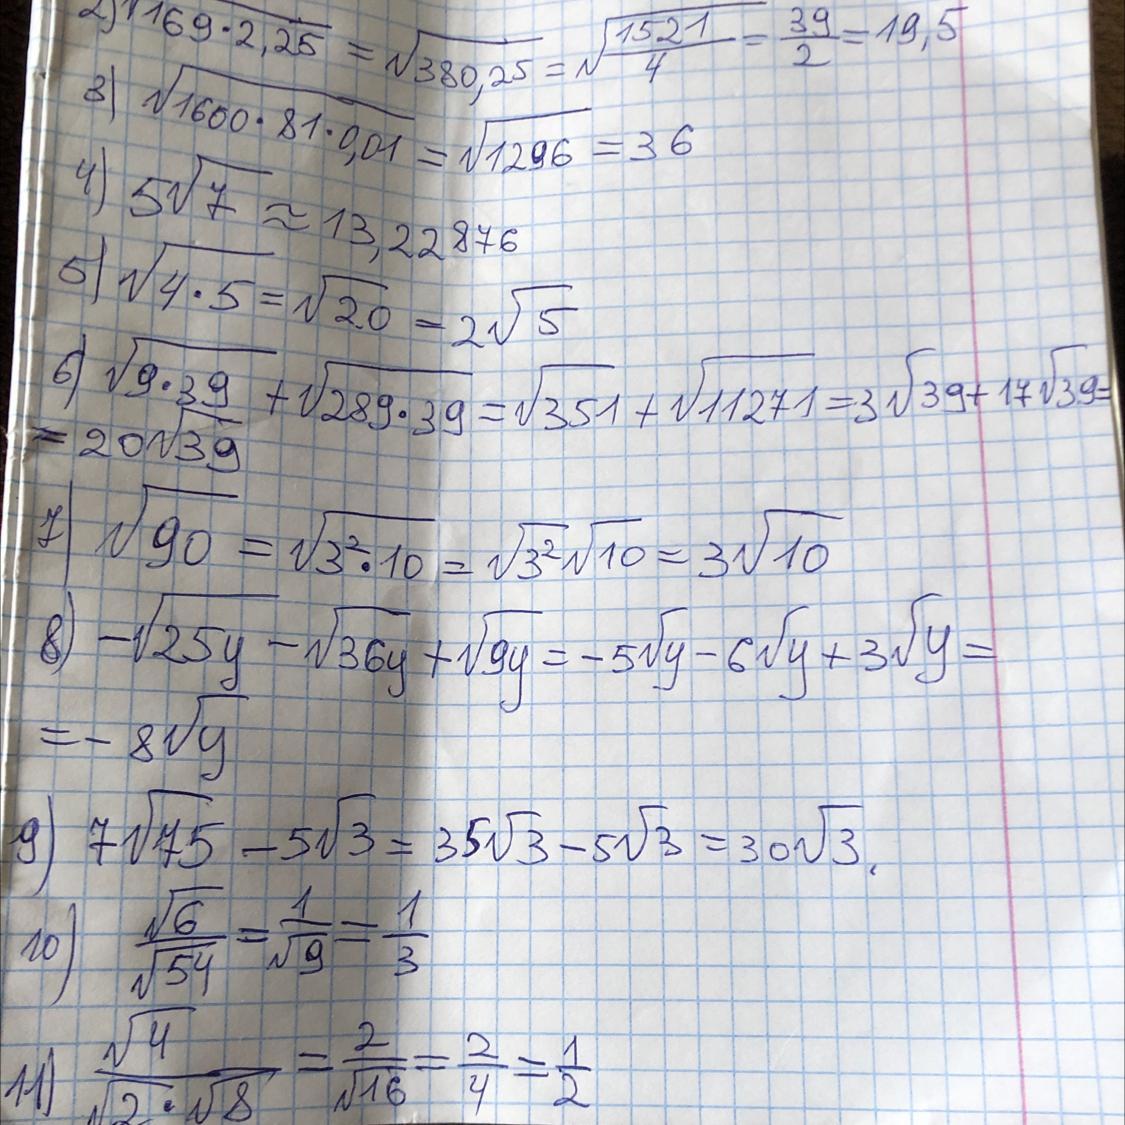 2) √169·2,25 = √380,25 = √1521/4 = 39/2 = 19,5
3) √1600·81·0,01 = √1296 = 36
4) 5√7 ≈ 13,22876
5) √4·5 = √20 = 2√5
6) √9·39 + √289·39 = √351 + √11271 = 3√39 + 17√39 =
= 20√39
7) √90 = √3²·10 = √3²√10 = 3√10
8) -√25y - √36y + √9y = -5√y - 6√y + 3√y =
= -8√y
9) 7√75 - 5√3 = 35√3 - 5√3 = 30√3.
10) √6/√54 = 1/√9 = 1/3
11) √4/√2·√8 = 2/√16 = 2/4 = 1/2